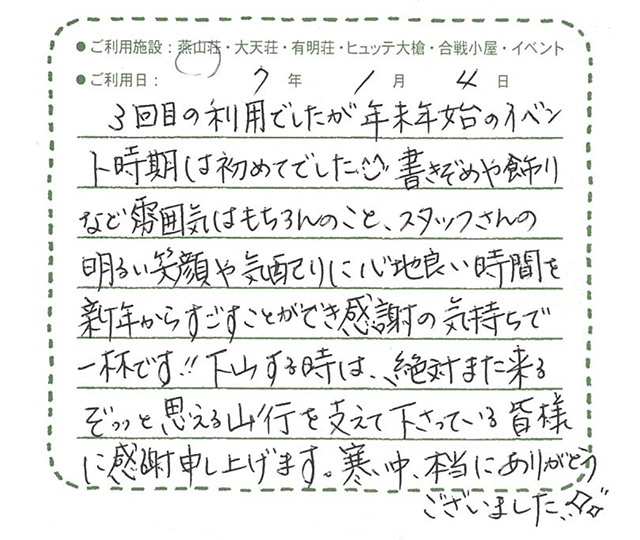 ●ご利用施設：燕山荘・大天荘・有明荘・ヒュッテ大槍・合戦小屋・イベント
●ご利用日： 7年 1月 4日
3回目の利用でしたが年末年始のイベン
ト時期は初めてでした 書きぞめや飾り
など雰囲気はもちろんのこと、スタッフさんの
明るい笑顔や気配りに心地良い時間を
新年からすごすことができ感謝の気持ちで
一杯です!! 下山する時は、絶対また来る
ぞっっと思える山行を支えて下さっている皆様
に感謝申し上げます。寒い中、本当にありがとう
ございました。